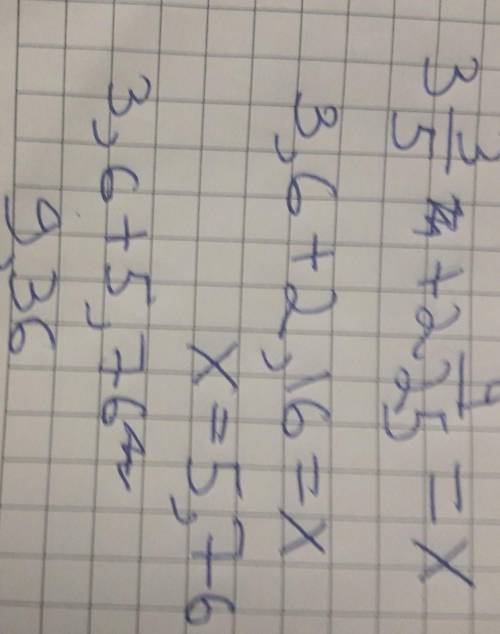 3 3/5 + 2 4/25 = x
3,6 + 2,16 = x
x = 5,76
3,6 + 5,76
9,36